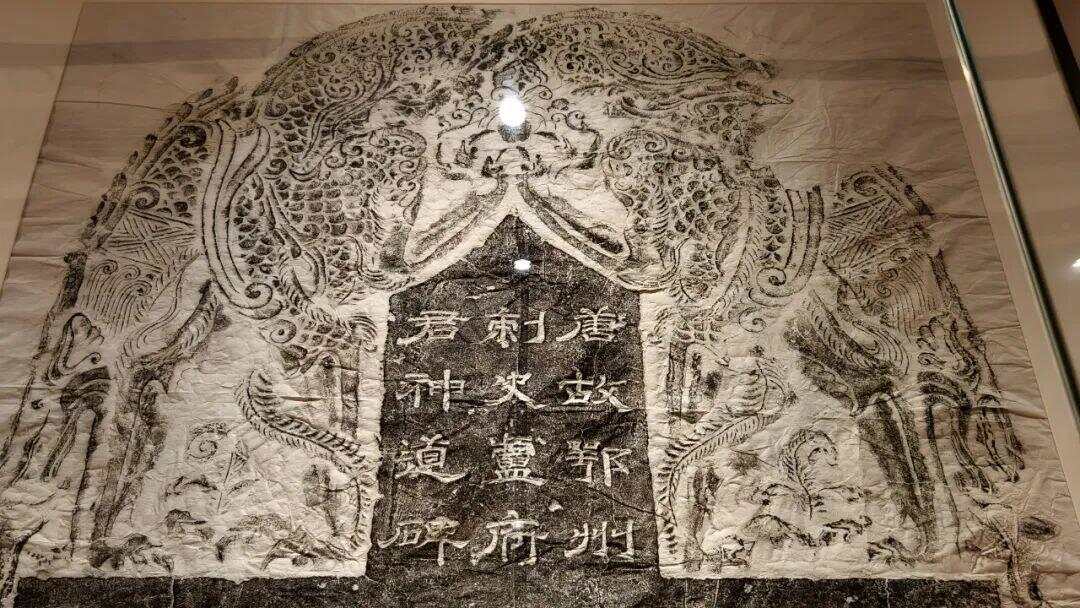 唐故鄂州
刺史盧府
君神道碑